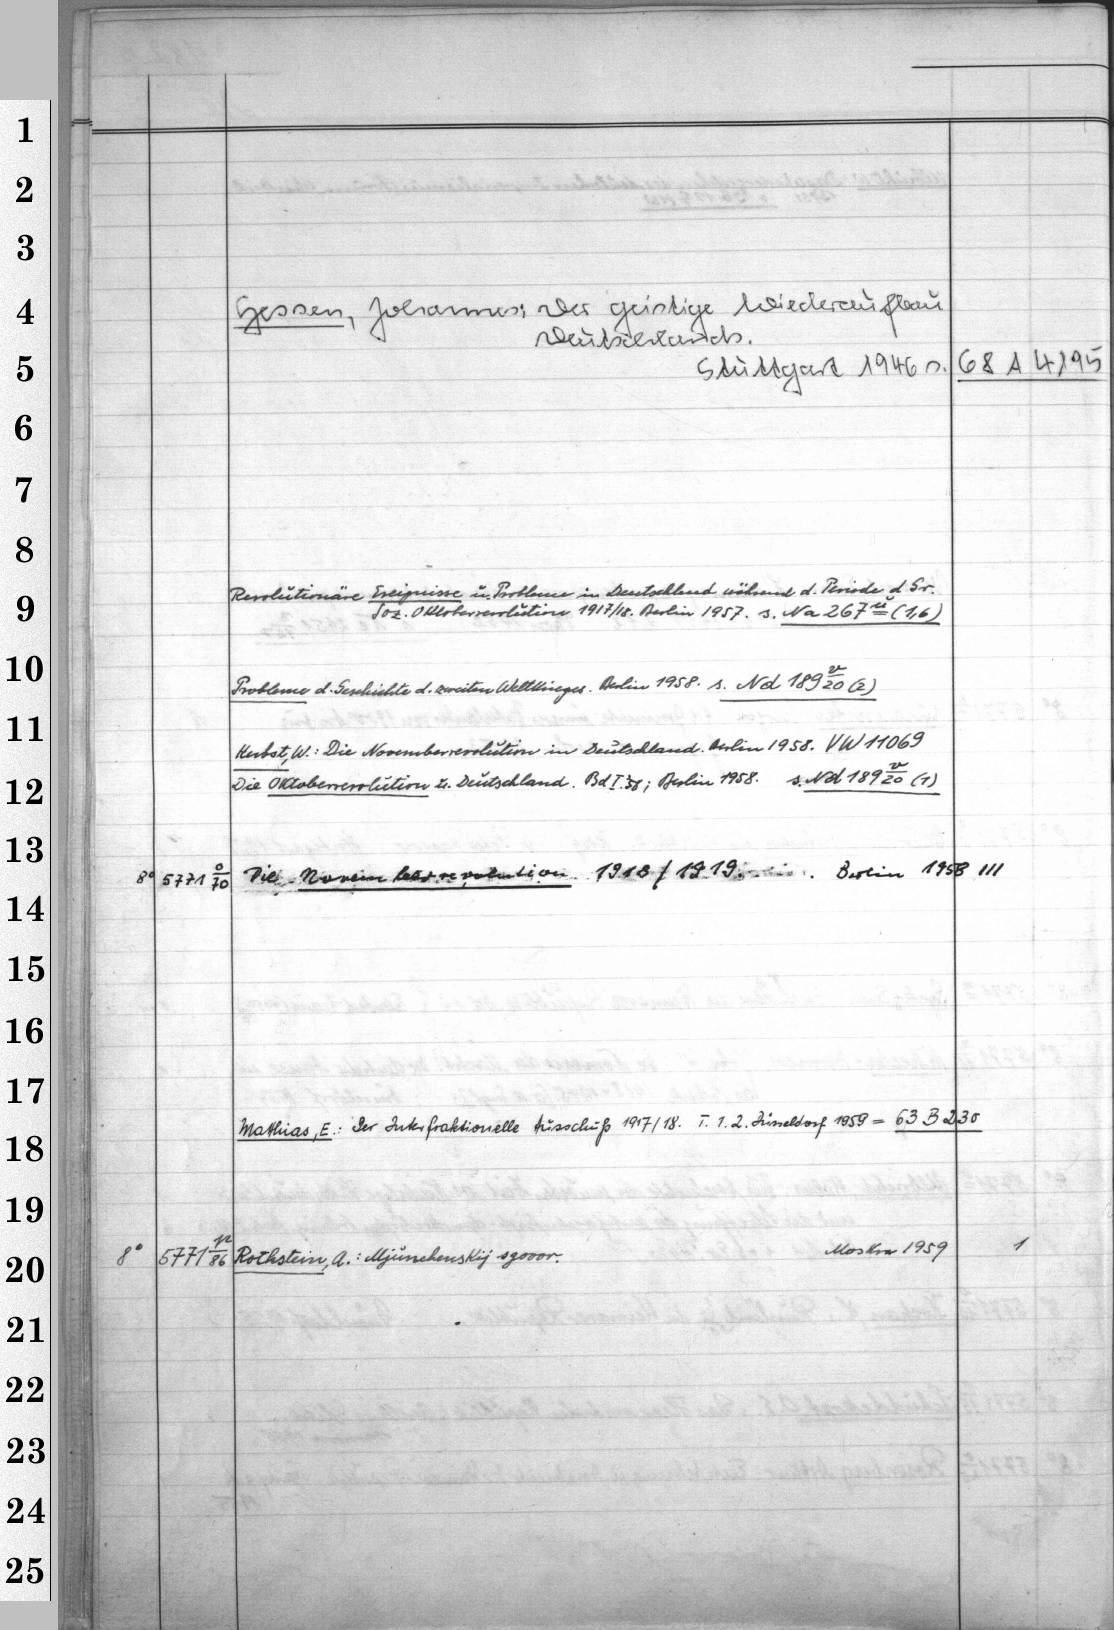 1
2
3
4
Hessen, Johannes: Der geistige Wiederaufbau
Deutschlands.
5
Stuttgart 1946 s. 68 A 4195
6
7
8
Revolutionäre Ereignisse u. Probleme in Deutschland während d. Periode d. Gr.
9
Soz. Oktoberrevolution 1917/18. Berlin 1957. s. Na 267 ü (1,6)
10
Probleme d. Geschichte d. zweiten Weltkrieges. Berlin 1958. s. Nd 189 v/20 (2)
11
Herbst, W.: Die Novemberrevolution in Deutschland. Berlin 1958. VW 11069
12
Die Oktoberrevolution u. Deutschland. Bd I. Berlin 1958. s. Nd 189 v/20 (1)
13
8° 5771 o/70 Die Novemberrevolution 1918/1919. Berlin 1958 III
14
15
16
17
Matthias, E.: Der Interfraktionelle Ausschuß 1917/18. T. 1.2. Düsseldorf 1959 = 63 B 230
18
19
8° 5771 p/86 Rothstein, A.: Mjunchenskij sgovor. Moskva 1959 1
20
21
22
23
24
25